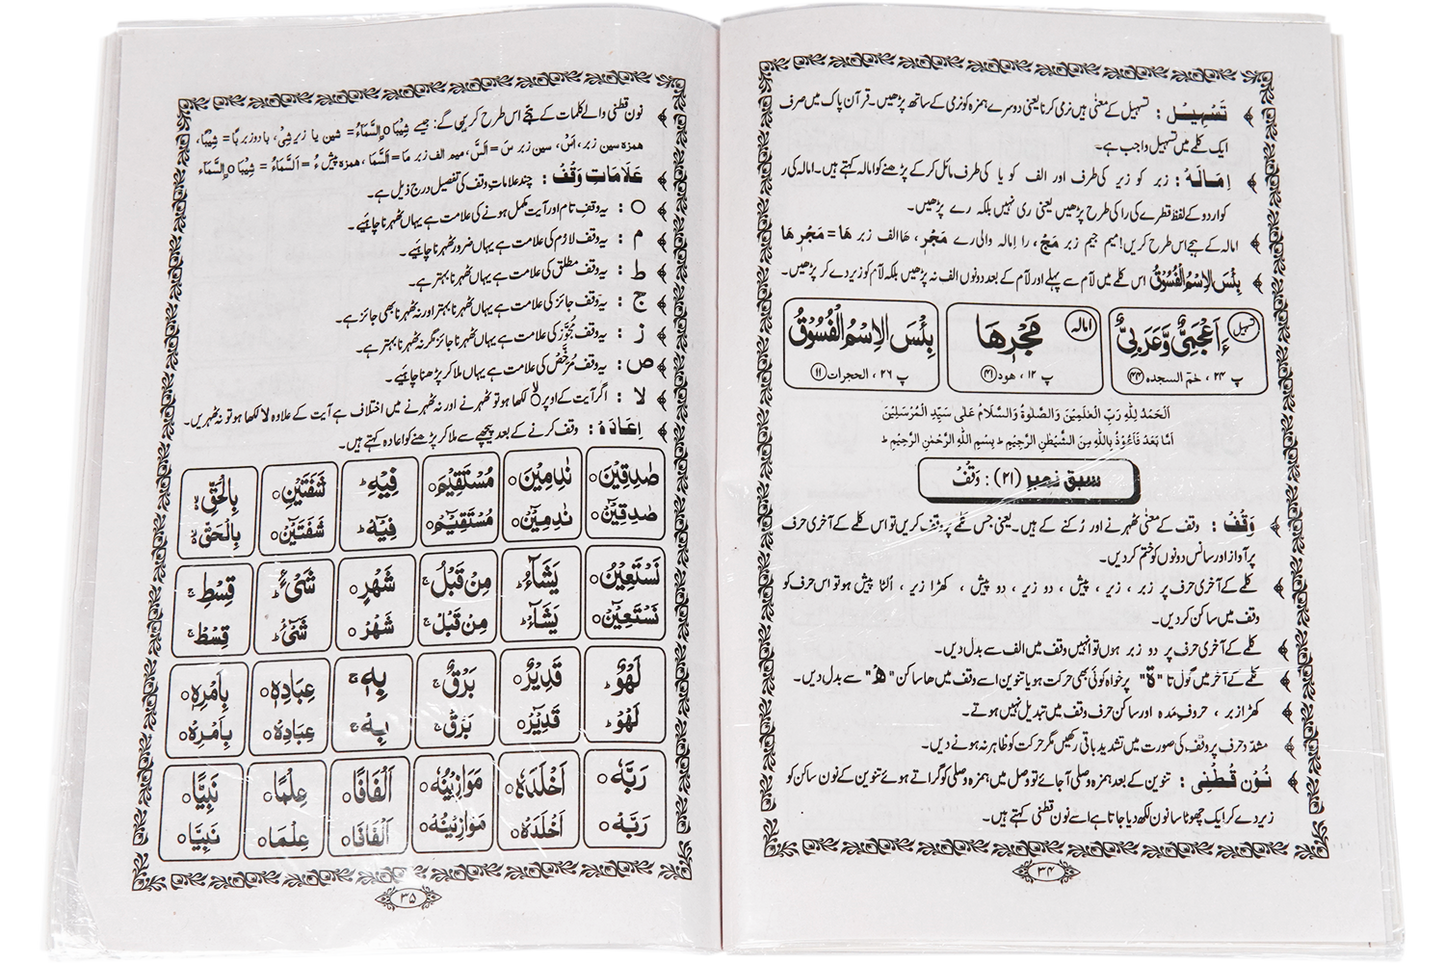 تَسْہِیْل : تسہیل کے معنٰی ہیں نرمی کرنا یعنی دوسرے ہمزہ کو نرمی کے ساتھ پڑھیں۔ قرآن پاک میں صرف
ایک کلمے میں تسہیل واجب ہے۔
اِمَالَہ : زبر کو زیر کی طرف اور الف کو یا کی طرف مائل کر کے پڑھنے کو امالہ کہتے ہیں۔ امالہ کی ر
کو اردو کے لفظ قطرے کی را کی طرح پڑھیں یعنی ری نہیں بلکہ رے پڑھیں۔
امالہ کے ہجے اس طرح کریں! میم جیم زبر مَجْ ، را اِمالہ والی رے مَجْرٖ ، ھا الف زبر ھَا = مَجْرٖىهَا
بِئْسَ الِاسْمُ الْفُسُوْقُ اس کلمے میں لام سے پہلے اور لام کے بعد دونوں الف نہ پڑھیں بلکہ لام کو زیر دے کر پڑھیں۔
تسہیل ءَاَعْجَمِیٌّ وَّعَرَبِیٌّ
پ ۲۴ ، حٰمٓ السجدہ (۴۴)
امالہ مَجْرٖىهَا
پ ۱۲ ، ھود (۴۱)
بِئْسَ الِاسْمُ الْفُسُوْقُ
پ ۲۶ ، الحجرات (۱۱)
اَلْحَمْدُ لِلّٰهِ رَبِّ الْعٰلَمِيْنَ وَالصَّلٰوةُ وَالسَّلَامُ عَلٰى سَيِّدِ الْمُرْسَلِيْنَ
اَمَّا بَعْدُ فَاَعُوْذُ بِاللّٰهِ مِنَ الشَّيْطٰنِ الرَّجِيْمِ ؕ بِسْمِ اللّٰهِ الرَّحْمٰنِ الرَّحِيْمِ ؕ
سبق نمبر (۲۱) : وَقْفْ
وَقْفْ : وقف کے معنٰی ٹھہرنے اور رُکنے کے ہیں۔ یعنی جس کلمے پر وقف کریں تو اس کلمے کے آخری حرف
پر آواز اور سانس دونوں کو ختم کردیں۔
کلمے کے آخری حرف پر زبر ، زیر ، پیش ، دو زیر ، دو پیش ، کھڑا زیر ، اُلٹا پیش ہو تو اس حرف کو
وقف میں ساکن کردیں۔
کلمے کے آخری حرف پر دو زبر ہوں تو اُنہیں وقف میں الف سے بدل دیں۔
کلمے کے آخر میں گول تا "ۃ" پر خواہ کوئی بھی حرکت ہو یا تنوین اسے وقف میں ھا ساکن "ہْ" سے بدل دیں۔
کھڑا زبر ، حروف مدہ اور ساکن حرف وقف میں تبدیل نہیں ہوتے۔
مشدّد حرف پر وقف کی صورت میں تشدید باقی رکھیں مگر حرکت کو ظاہر نہ ہونے دیں۔
نُوْن قُطْنِی : تنوین کے بعد ہمزہ وصلی آجائے تو وصل میں ہمزہ وصلی کو گراتے ہوئے تنوین کے نون ساکن کو
زیر دے کر ایک چھوٹا سا نون لکھ دیا جاتا ہے اسے نون قطنی کہتے ہیں۔
۳۴
نون قطنی والے کلمات کے ہجے اس طرح کریں گے: جیسے شِیْبَا ۨالسَّمَآءُ = شین یا زیر شِیْ، با دو زبر بًا = شِیْبًا،
ہمزہ سین زبر، اَسْ، سین زبر سَ = اَلسَّ، میم الف زبر مَا = اَلسَّمَا، ہمزہ پیش ءُ = اَلسَّمَآءُ = شِیْبَا ۨالسَّمَآءُ
عَلَامَاتِ وَقْفْ : چند علاماتِ وقف کی تفصیل درج ذیل ہے۔
○ : یہ وقفِ تام اور آیت مکمل ہونے کی علامت ہے یہاں ٹھہرنا چاہیے۔
م : یہ وقف لازم کی علامت ہے یہاں ضرور ٹھہرنا چاہیے۔
ط : یہ وقف مطلق کی علامت ہے یہاں ٹھہرنا بہتر ہے۔
ج : یہ وقف جائز کی علامت ہے یہاں ٹھہرنا بہتر اور نہ ٹھہرنا بھی جائز ہے۔
ز : یہ وقف مُجَوَّز کی علامت ہے یہاں ٹھہرنا جائز مگر نہ ٹھہرنا بہتر ہے۔
ص : یہ وقف مُرَخَّص کی علامت ہے یہاں ملا کر پڑھنا چاہیے۔
لا : اگر آیت کے اوپر لکھا ہو تو ٹھہرنے اور نہ ٹھہرنے میں اختلاف ہے آیت کے علاوہ لا لکھا ہو تو نہ ٹھہریں۔
اِعَادَہ : وقف کرنے کے بعد پیچھے سے ملا کر پڑھنے کو اعادہ کہتے ہیں۔
صٰدِقِیْنَ○ نٰدِمِیْنَ○ مُسْتَقِیْمٍ○ فِیْهِ ۛ شَفَتَیْنِ○ بِالْحَقِّ ۙ
صٰدِقِیْنْ○ نٰدِمِیْنْ○ مُسْتَقِیْمْ○ فِیْهْ ۛ شَفَتَیْنْ○ بِالْحَقّْ ۙ
نَسْتَعِیْنُ○ یَشَآءُ ؕ مِنْ قَبْلُ ۚ شَهْرٍ○ شَیْءٍ ؕ قِسْطِ ۚ
نَسْتَعِیْنْ○ یَشَآءْ ؕ مِنْ قَبْلْ ۚ شَهْرْ○ شَیْءْ ؕ قِسْطْ ۚ
لَهْوٌ ؕ قَدِیْرٌ○ بَرْقٌ ۚ بِهٖ ۚ عِبَادِهٖ○ بِاَمْرِهٖ○
لَهْوْ ؕ قَدِیْرْ○ بَرْقْ ۚ بِهْ ۚ عِبَادِهْ○ بِاَمْرِهْ○
رَبَّهٗ○ اَخْلَدَهٗ○ مَوَازِیْنُهٗ○ اَلْفَافًا○ عِلْمًا○ نَبِیًّا○
رَبَّهْ○ اَخْلَدَهْ○ مَوَازِیْنُهْ○ اَلْفَافَا○ عِلْمَا○ نَبِیَّا○
۳۵